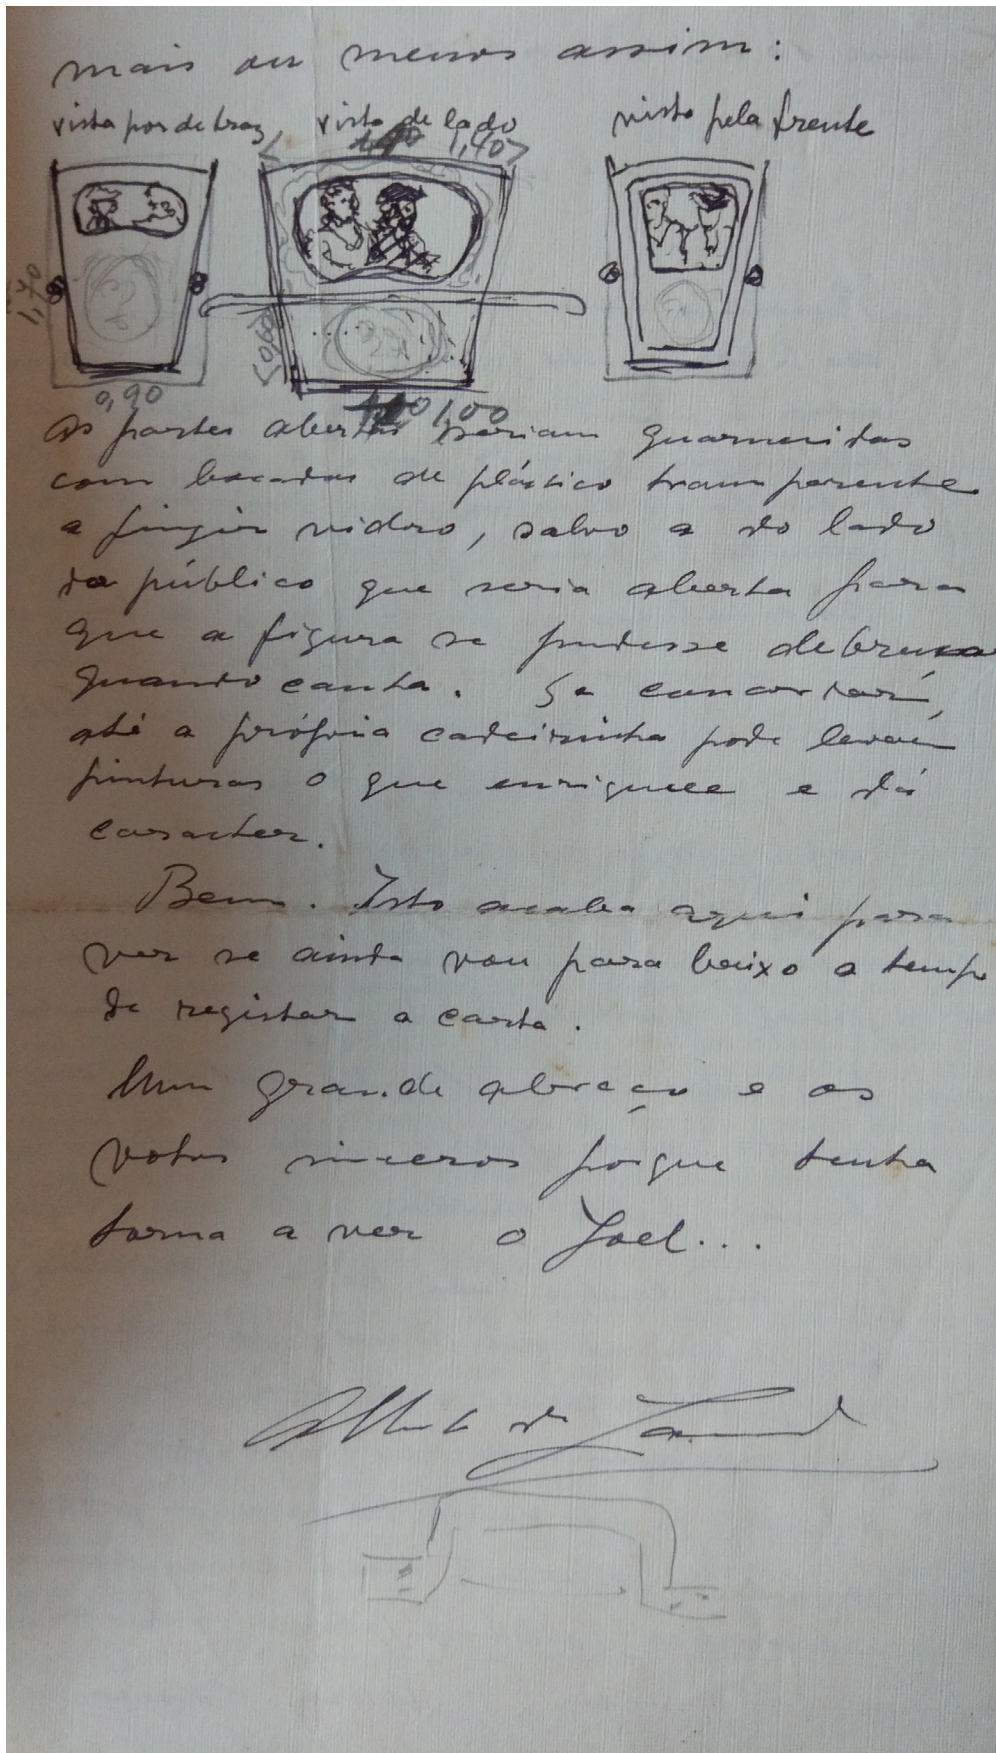 mais ou menos assim:
vista por de traz vista de lado vista pela frente
1,40
1,70
0,60
0,90
1,00
As partes abertas seriam guarnecidas
com bocados de plástico transparente
a fingir vidro, salvo a do lado
do público que seria aberta para
que a figura se pudesse debruçar
quando canta. Se concordar,
até a própria cadeirinha pode levar
pinturas o que enriquece e dá
caracter.
Bem. Isto acaba aqui para
ver se ainda vou para baixo a tempo
de registar a carta.
Um grande abraço e os
votos sinceros porque tenha
torna a ver o Joel...
de